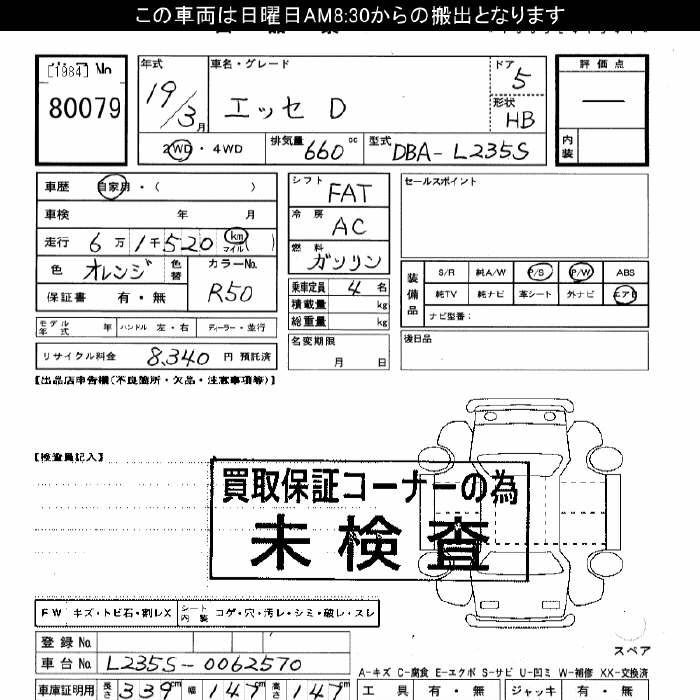 この車両は日曜日AM8:30からの搬出となります
[1984] No
80079
年式
19/3月
車名・グレード
エッセ D
ドア
5
形状
HB
2WD・4WD
排気量 660 cc
型式 DBA-L235S
評価点
内装
車歴 自家用・( )
車検 年 月
走行 6万1千520 km マイル ( )
色 オレンジ 色替
カラーNo. R50
保証書 有・無
モデル年式 年 ハンドル 左・右 ディーラー・並行
リサイクル料金 8,340 円 預託済
シフト FAT
冷房 AC
燃料 ガソリン
乗車定員 4 名
積載量 kg
総重量 kg
名変期限
月 日
セールスポイント
装備品
S/R 純A/W P/S P/W ABS
純TV 純ナビ 革シート 外ナビ エアB
ナビ型番:
後日品
【出品店申告欄(不良箇所・欠品・注意事項等)】
【検査員記入】
買取保証コーナーの為
未検査
FW キズ・トビ石・割レX
シート内装 コゲ・穴・汚レ・シミ・破レ・スレ
スペア
登録No.
車台No. L235S-0062570
A-キズ C-腐食 E-エクボ S-サビ U-凹ミ W-補修 XX-交換済
車庫証明用 長さ 339cm 幅 147cm 高さ 147cm
工具 有・無 ジャッキ 有・無